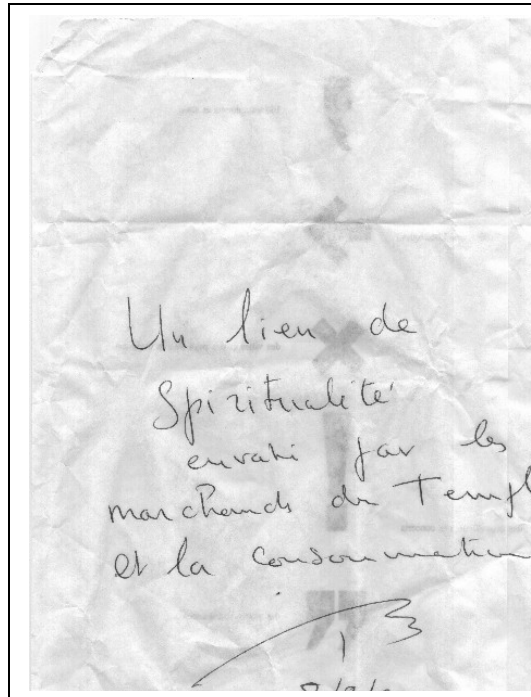 Un lieu de
Spiritualité
envahi par les
marchands du Templ
et la consommation